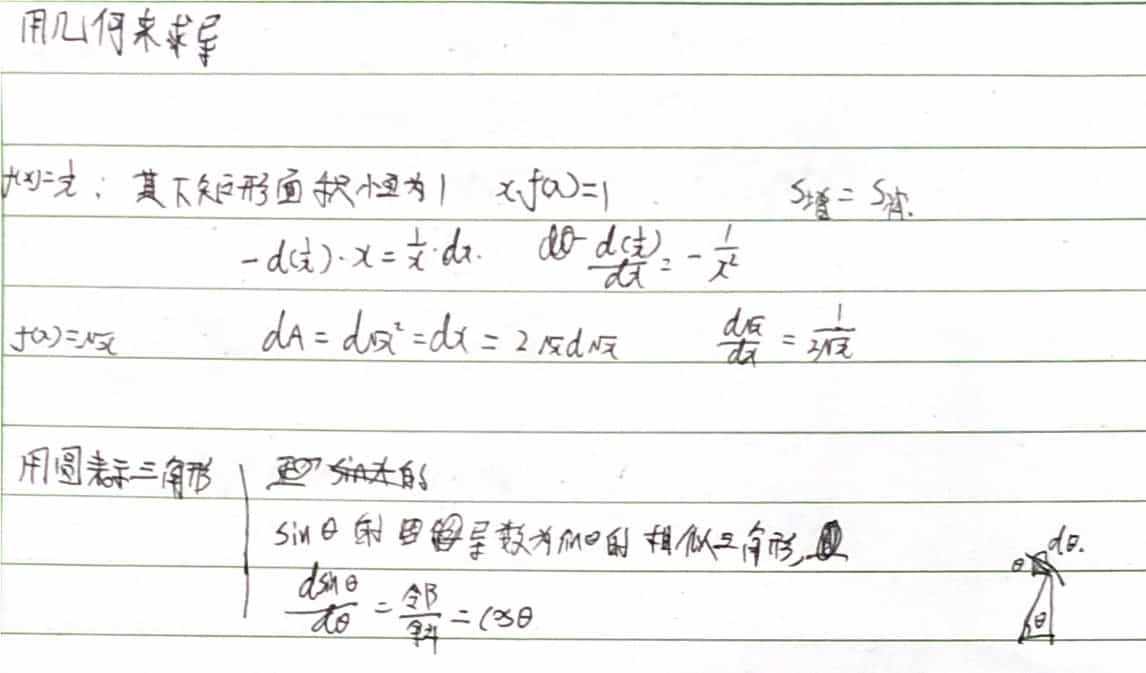 用几何来求导
f(x)=1/x : 其下矩形面积恒为1 x·f(x)=1 S增 = S减.
-d(1/x)·x = 1/x·dx. d(1/x)/dx = -1/x²
f(x)=√x dA = d√x² = dx = 2√x d√x d√x/dx = 1/2√x
用圆表示三角形
sinθ的 导数为 θ的相似三角形,
dsinθ/dθ = 邻/斜 = cosθ
θ dθ.
θ